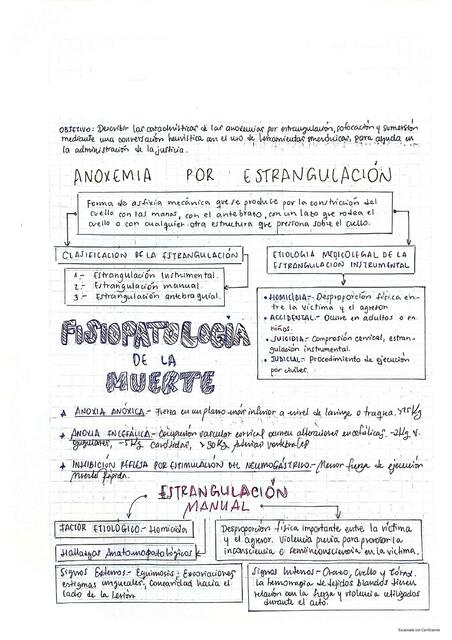 OBJETIVO: Describir las características de las anoxemias por estrangulación, sofocación y sumersión
mediante una conversación heurística con el uso de herramientas periciales, para ayuda en
la administración de la justicia.
ANOXEMIA POR ESTRANGULACIÓN
Forma de asfixia mecánica que se produce por la constricción del
cuello con las manos, con el antebrazo, con un lazo que rodea el
cuello o con cualquier otra estructura que presiona sobre el cuello.
CLASIFICACION DE LA ESTRANGULACIÓN
1.- Estrangulación Instrumental.
2.- Estrangulación manual.
3.- Estrangulación antebraquial.
ETIOLOGIA MEDICOLEGAL DE LA
ESTRANGULACION INSTRUMENTAL
• HOMICIDIA.- Desproporción física en-
tre la víctima y el agresor
• ACCIDENTAL.- Ocurre en adultos o en
niños.
• SUICIDIA.- Compresión cervical, estran-
gulación instrumental.
• JUDICIAL.- Procedimiento de ejecución
por
FISIOPATOLOGÍA
DE LA
MUERTE
ANOXIA ANÓXICA.- Fuerza en un plano inferior a nivel de laringe o traquea, 15 Kg
ANOXIA ENCEFÁLICA.- Compresión vascular cervical alteraciones encefálicas. -2Kg V.
yugulares, -5 Kg carótidas, >30Kg arterias vertebrales
INHIBICIÓN REFLEJA POR ESTIMULACION DEL NEUMOGÁSTRICO.- Menor fuerza de ejecución
muerte rápida.
ESTRANGULACIÓN
MANUAL
FACTOR ETIOLÓGICO.- Homicida
Hallazgos Anatomopatológicos
Desproporción física importante entre la víctima
y el agresor. Violencia previa para provocar la
inconsciencia o semiinconsciencia en la víctima.
Signos Externos.- Equimosis; Excoriaciones
estigmas ungueales, concavidad hacia el
lado de la lesión
Signos Internos.- Craneo, Cuello y Tórax.
La hemorragia de tejidos blandos tienen
relación con la fuerza y violencia utilizados
durante el acto.
Escaneado con CamScanner